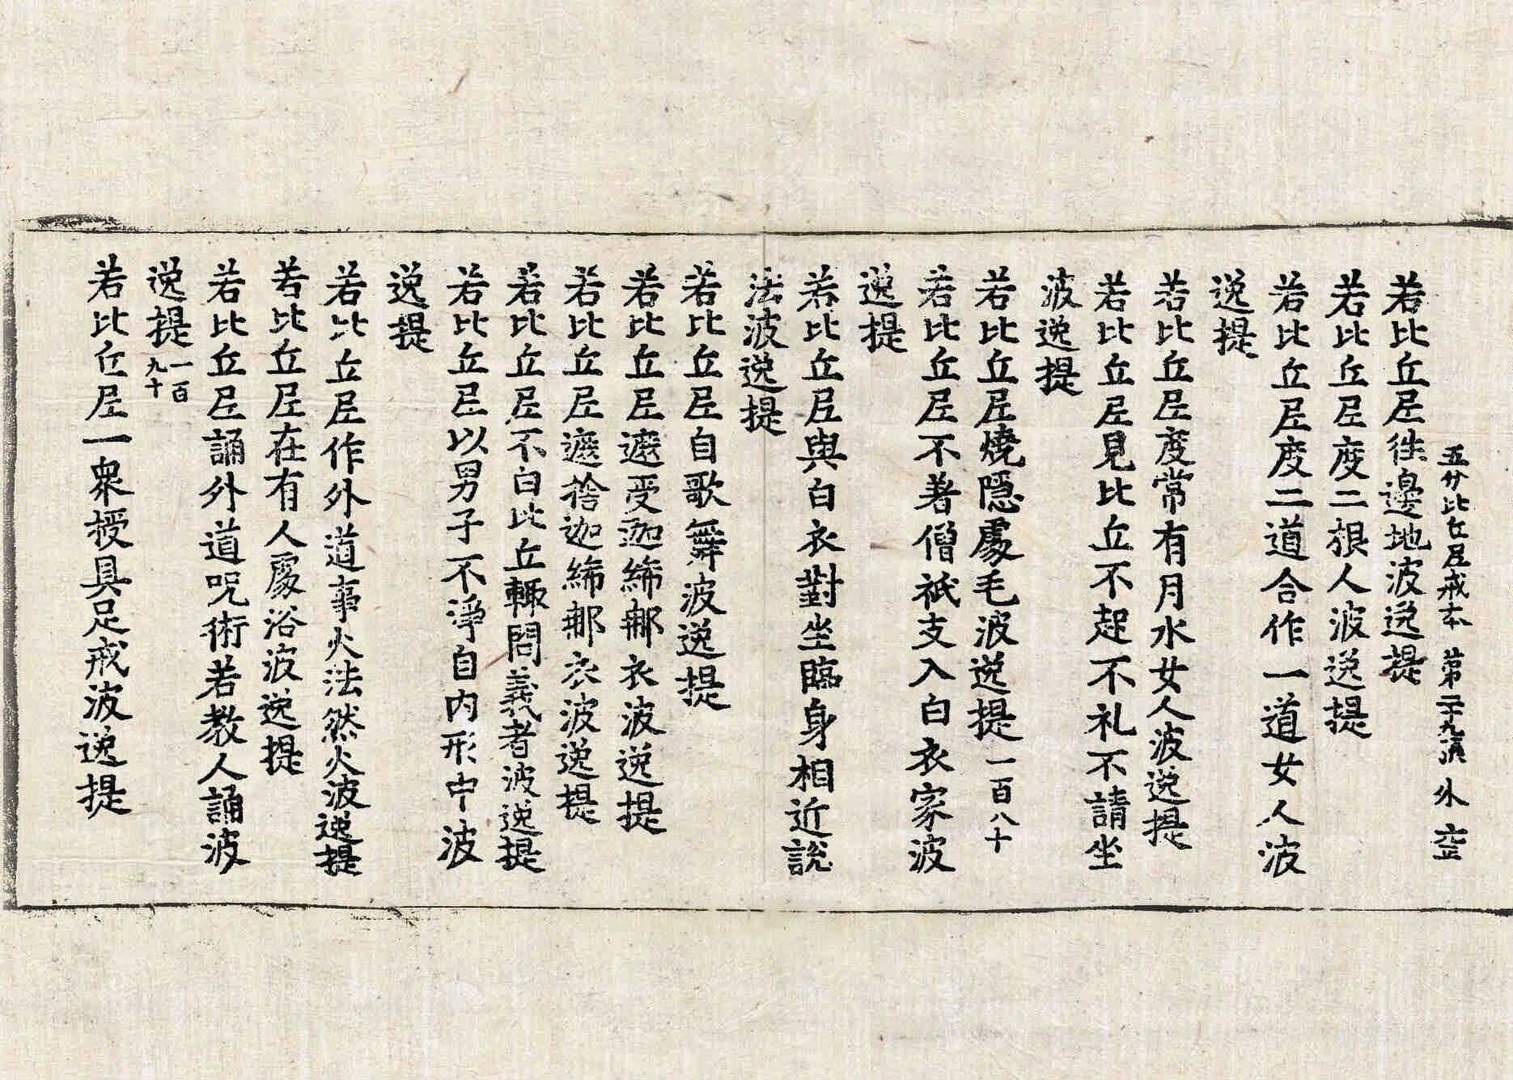 五分比丘尼戒本 第二十九張 外 空
若比丘尼往邊地波逸提
若比丘尼度二根人波逸提
若比丘尼度二道合作一道女人波
逸提
若比丘尼度常有月水女人波逸提
若比丘尼見比丘不起不礼不請坐
波逸提
若比丘尼燒隱處毛波逸提一百八十
若比丘尼不著僧祇支入白衣家波
逸提
若比丘尼與白衣對坐臨身相近說
法波逸提
若比丘尼自歌舞波逸提
若比丘尼遮受迦絺那衣波逸提
若比丘尼遮捨迦絺那衣波逸提
若比丘尼不白比丘輒問義者波逸提
若比丘尼以男子不淨自内形中波
逸提
若比丘尼作外道事火法然火波逸提
若比丘尼在有人處浴波逸提
若比丘尼誦外道呪術若教人誦波
逸提一百九十
若比丘尼一衆授具足戒波逸提